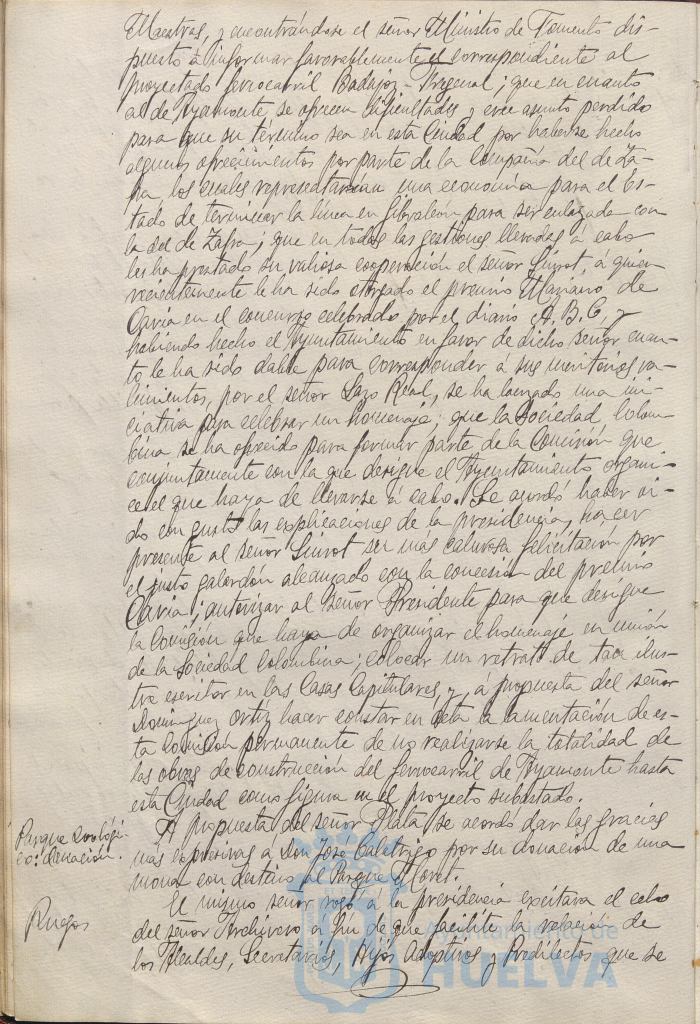 Maestras, y encontrándose el señor Ministro de Fomento dis-
puesto á informar favorablemente el correspondiente al
proyectado ferrocarril Badajoz-Fregenal; que en cuanto
al de Ayamonte, se ofrecen dificultades y cree asunto perdido
para que su término sea en esta Ciudad por haberse hecho
algunos ofrecimientos por parte de la Compañía del de Za-
fra, los cuales representarían una economía para el Es-
tado de terminar la línea en Gibraleón para ser enlazada con
la del de Zafra; que en todas las gestiones llevadas á cabo
les ha prestado su valiosa cooperación el señor Siurot, á quien
recientemente le ha sido otorgado el premio Mariano de
Cavia en el concurso celebrado por el diario A.B.C, y
habiendo hecho el Ayuntamiento en favor de dicho señor cuan-
to le ha sido dable para corresponder á sus meritorios va-
limientos, por el señor Lazo Real, se ha lanzado una ini-
ciativa para celebrar un homenaje; que la Sociedad Colom-
bina se ha ofrecido para formar parte de la Comisión que
conjuntamente con la que designe el Ayuntamiento organi-
ce el que haya de llevarse á cabo. Se acordó haber oi-
do con gusto las explicaciones de la presidencia, hacer
presente al señor Siurot su más calurosa felicitación por
el justo galardón alcanzado con la concesión del premio
Cavia; autorizar al señor Presidente para que designe
la Comisión que haya de organizar el homenaje en unión
de la Sociedad Colombina; colocar un retrato de tan ilus-
tre escritor en las Casas Capitulares, y, á propuesta del señor
Domínguez Ortíz hacer constar en acta la lamentación de es-
ta Comisión permanente de no realizarse la totalidad de
las obras de construcción del ferrocarril de Ayamonte hasta
esta Ciudad como figura en el proyecto subastado.
Parque zoológi-
co: donación.
A propuesta del señor Plata se acordó dar las gracias
más expresivas a Don José Calatrigo por su donación de una
mona con destino al Parque Moret.
Ruegos
El mismo señor rogó a la presidencia excitara el celo
del señor Archivero a fin de que facilite la relación de
los Alcaldes, Secretarios, Hijos Adoptivos y Predilectos que se
Ayuntamiento de
HUELVA